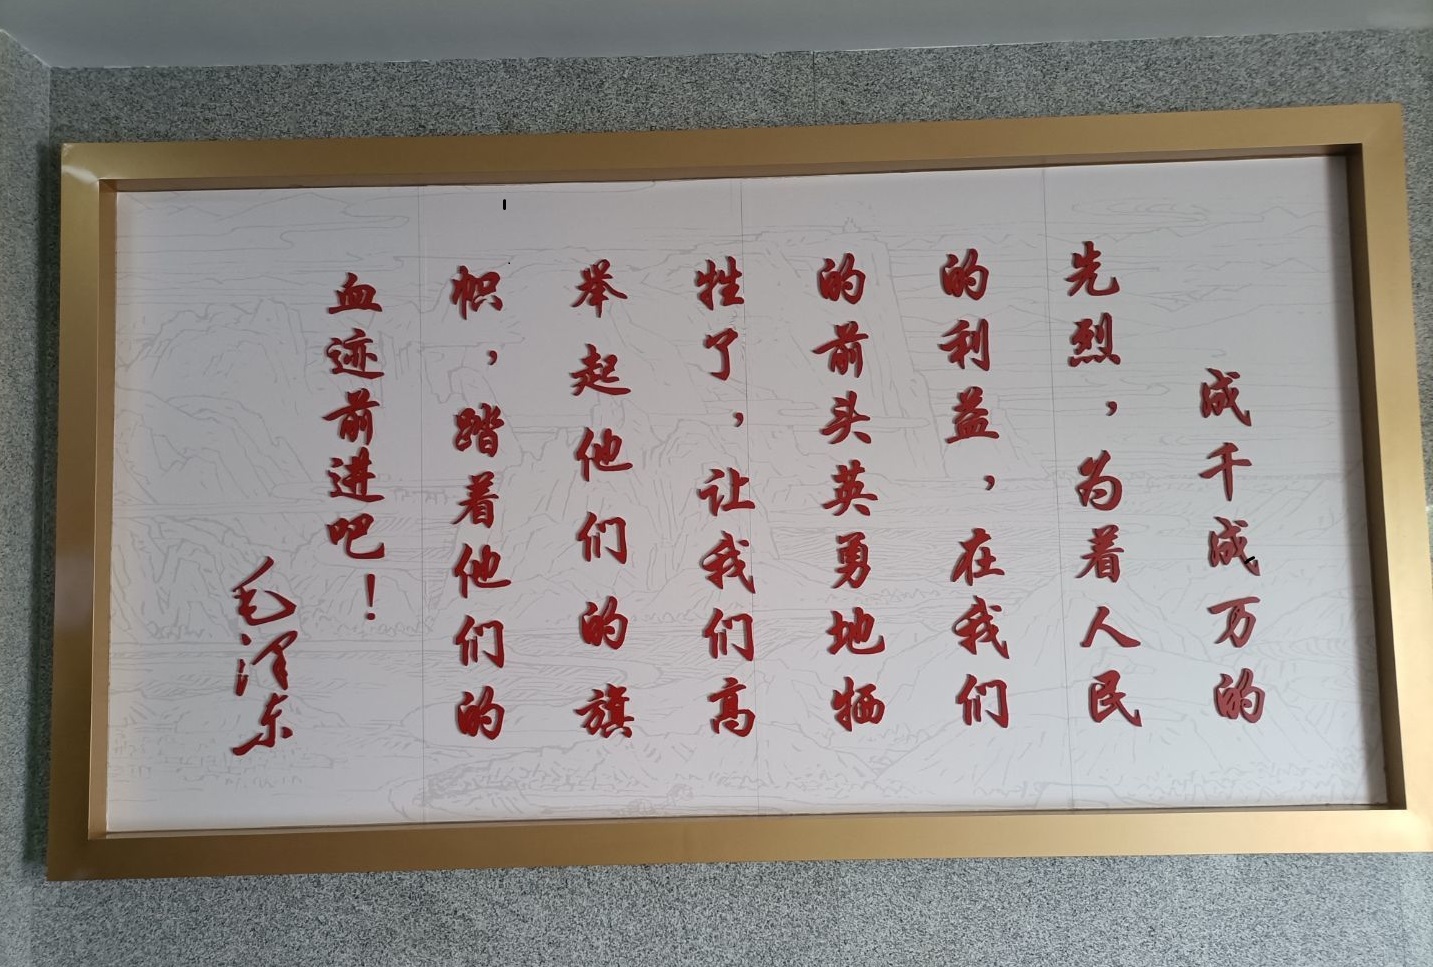 成千成万的
先烈，为着人民
的利益，在我们
的前头英勇地牺
牲了，让我们高
举起他们的旗
帜，踏着他们的
血迹前进吧！
毛泽东